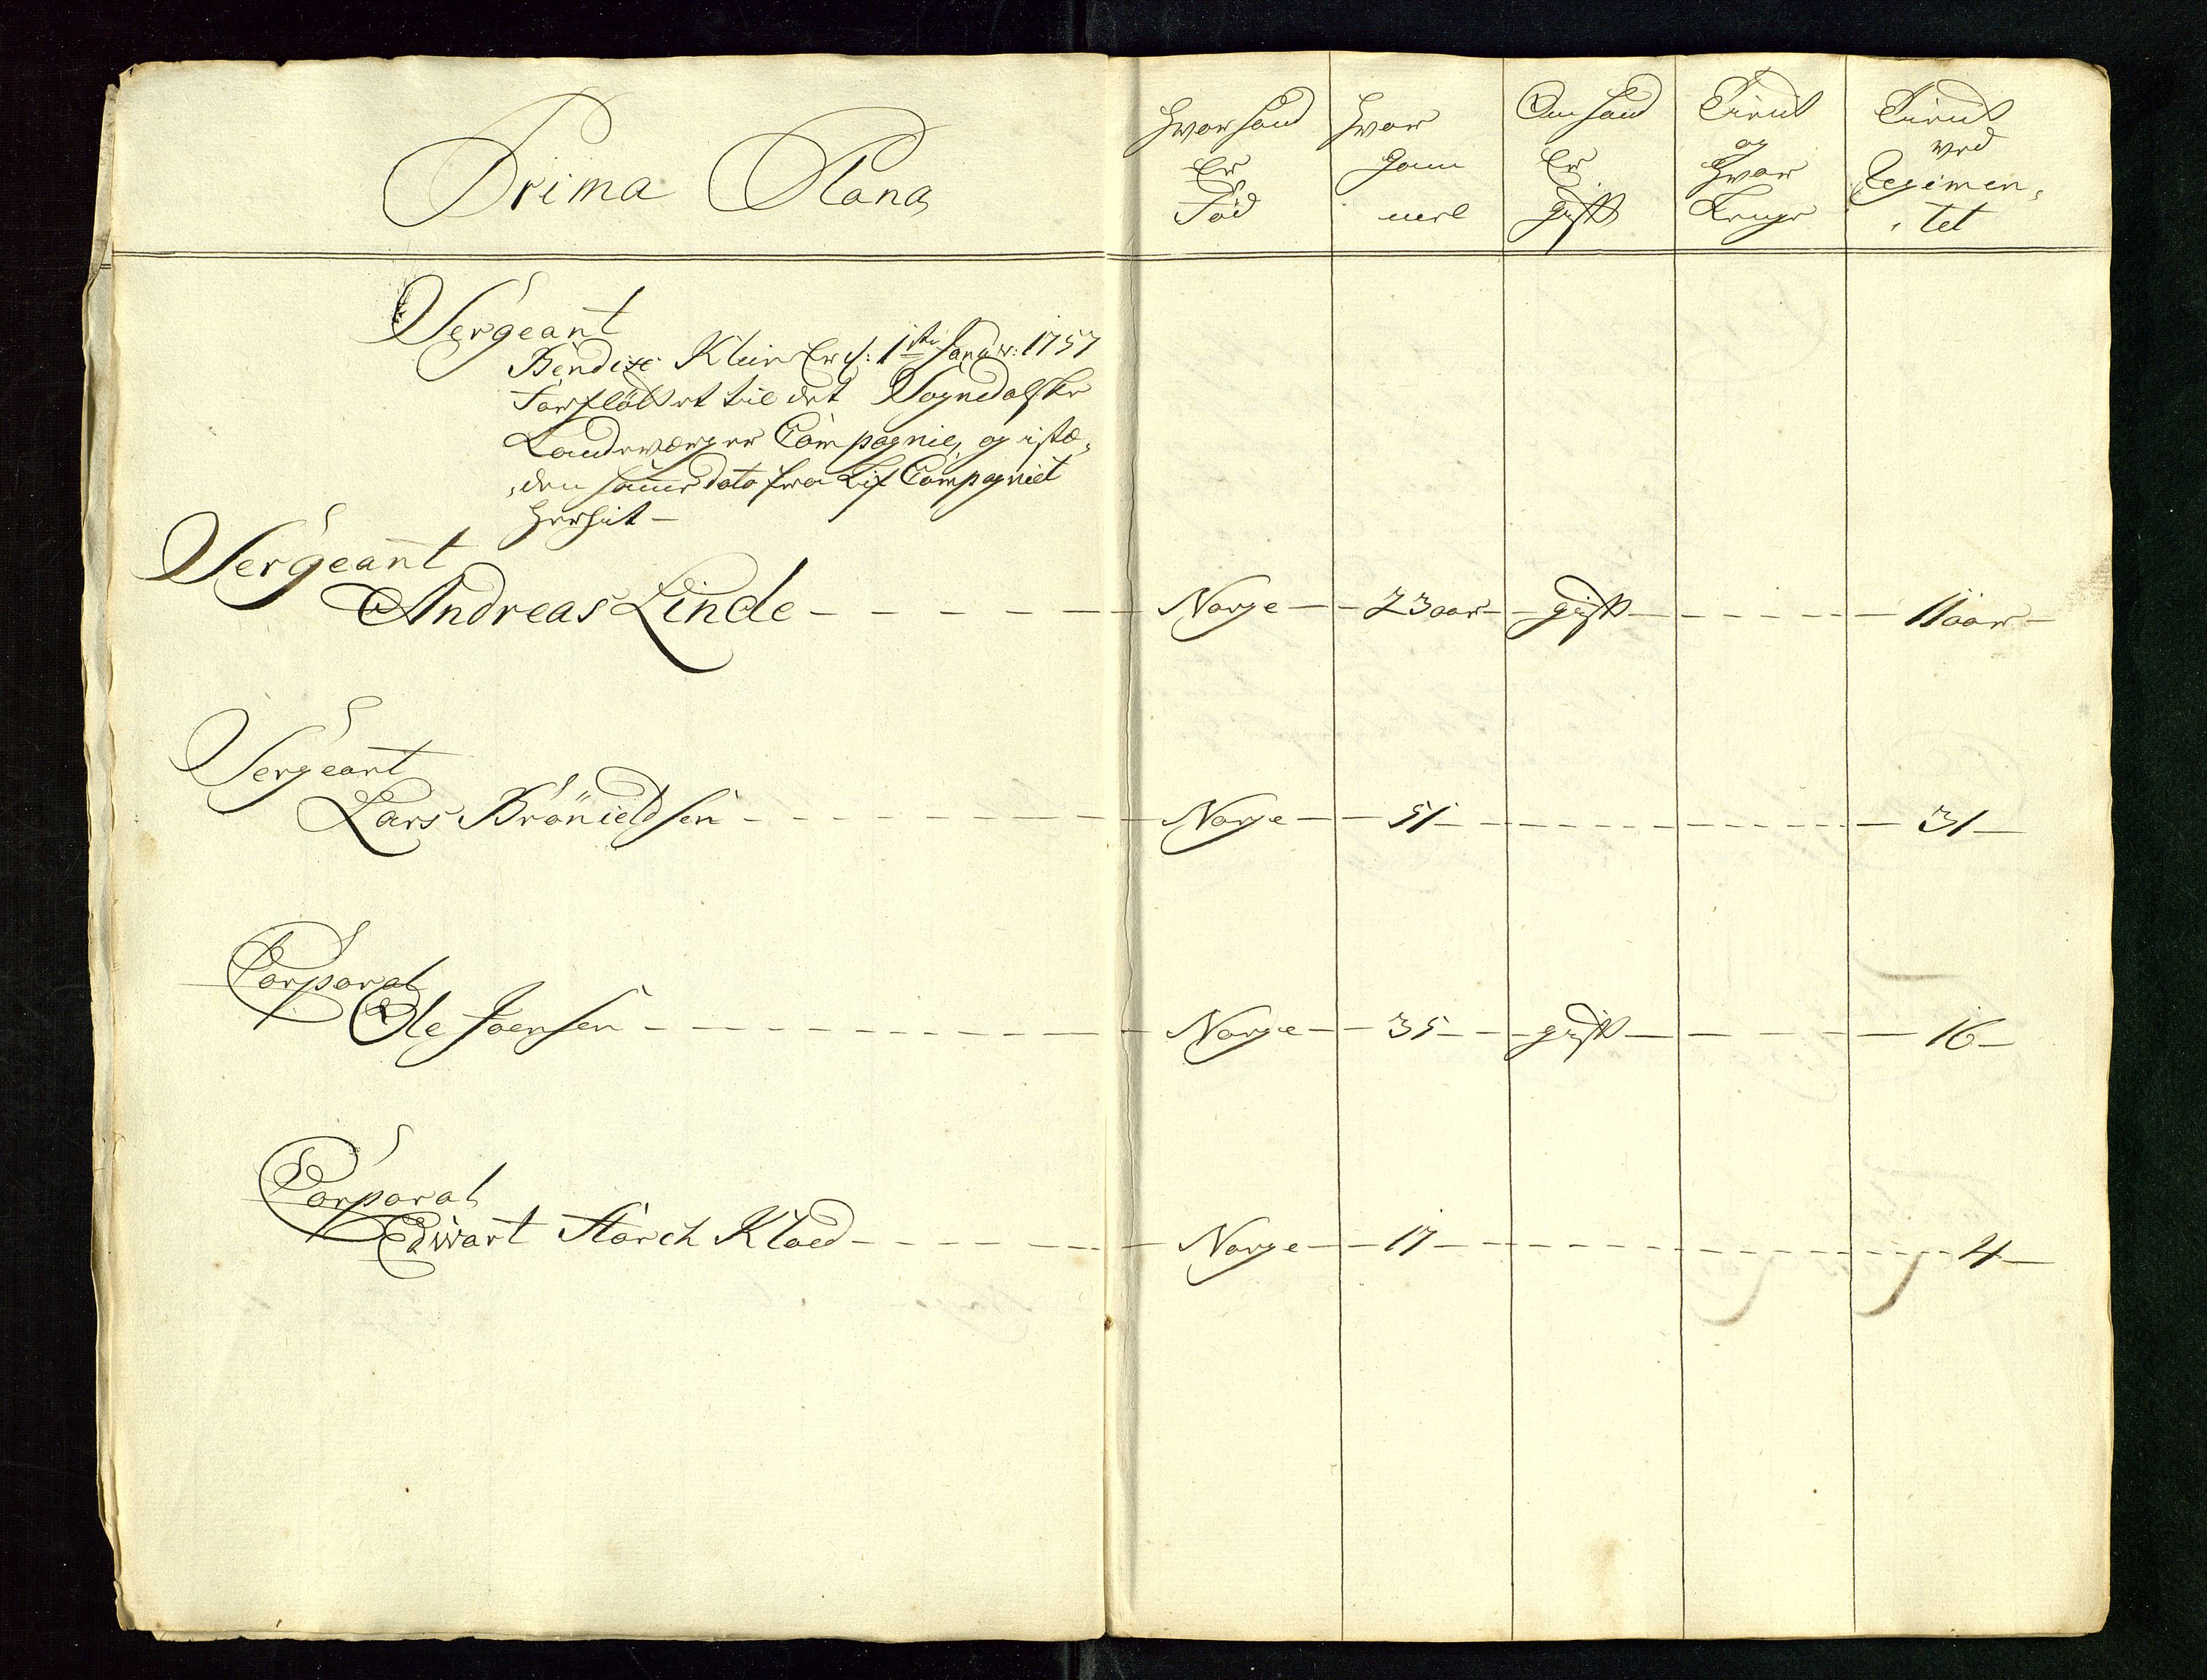 Prima Plana
Hvor hand
Er
Fød
Hvor
Gam
mel
Om hand
Er
gift
Tient
og
Hvor
Lenge
Tient
ved
Regimen,
,tet
Sergeant
Bendix Klein Er d: 1ste Janua: 1757
Forflöttet til det Sogndalske
Landeværger Compagnie, og istæ,
,den samme dato fra Lif Compagniet
Herhit -
Sergeant
Andreas Linde - Norge - 23 aar - gift - 11 aar -
Sergeant
Lars Brönieldsen - Norge - 51 - 31 -
Corporal
Ole Joensen - Norge - 35 - gift - 16 -
Corporal
Edwart Storch Kloed - Norge - 17 - 4 -